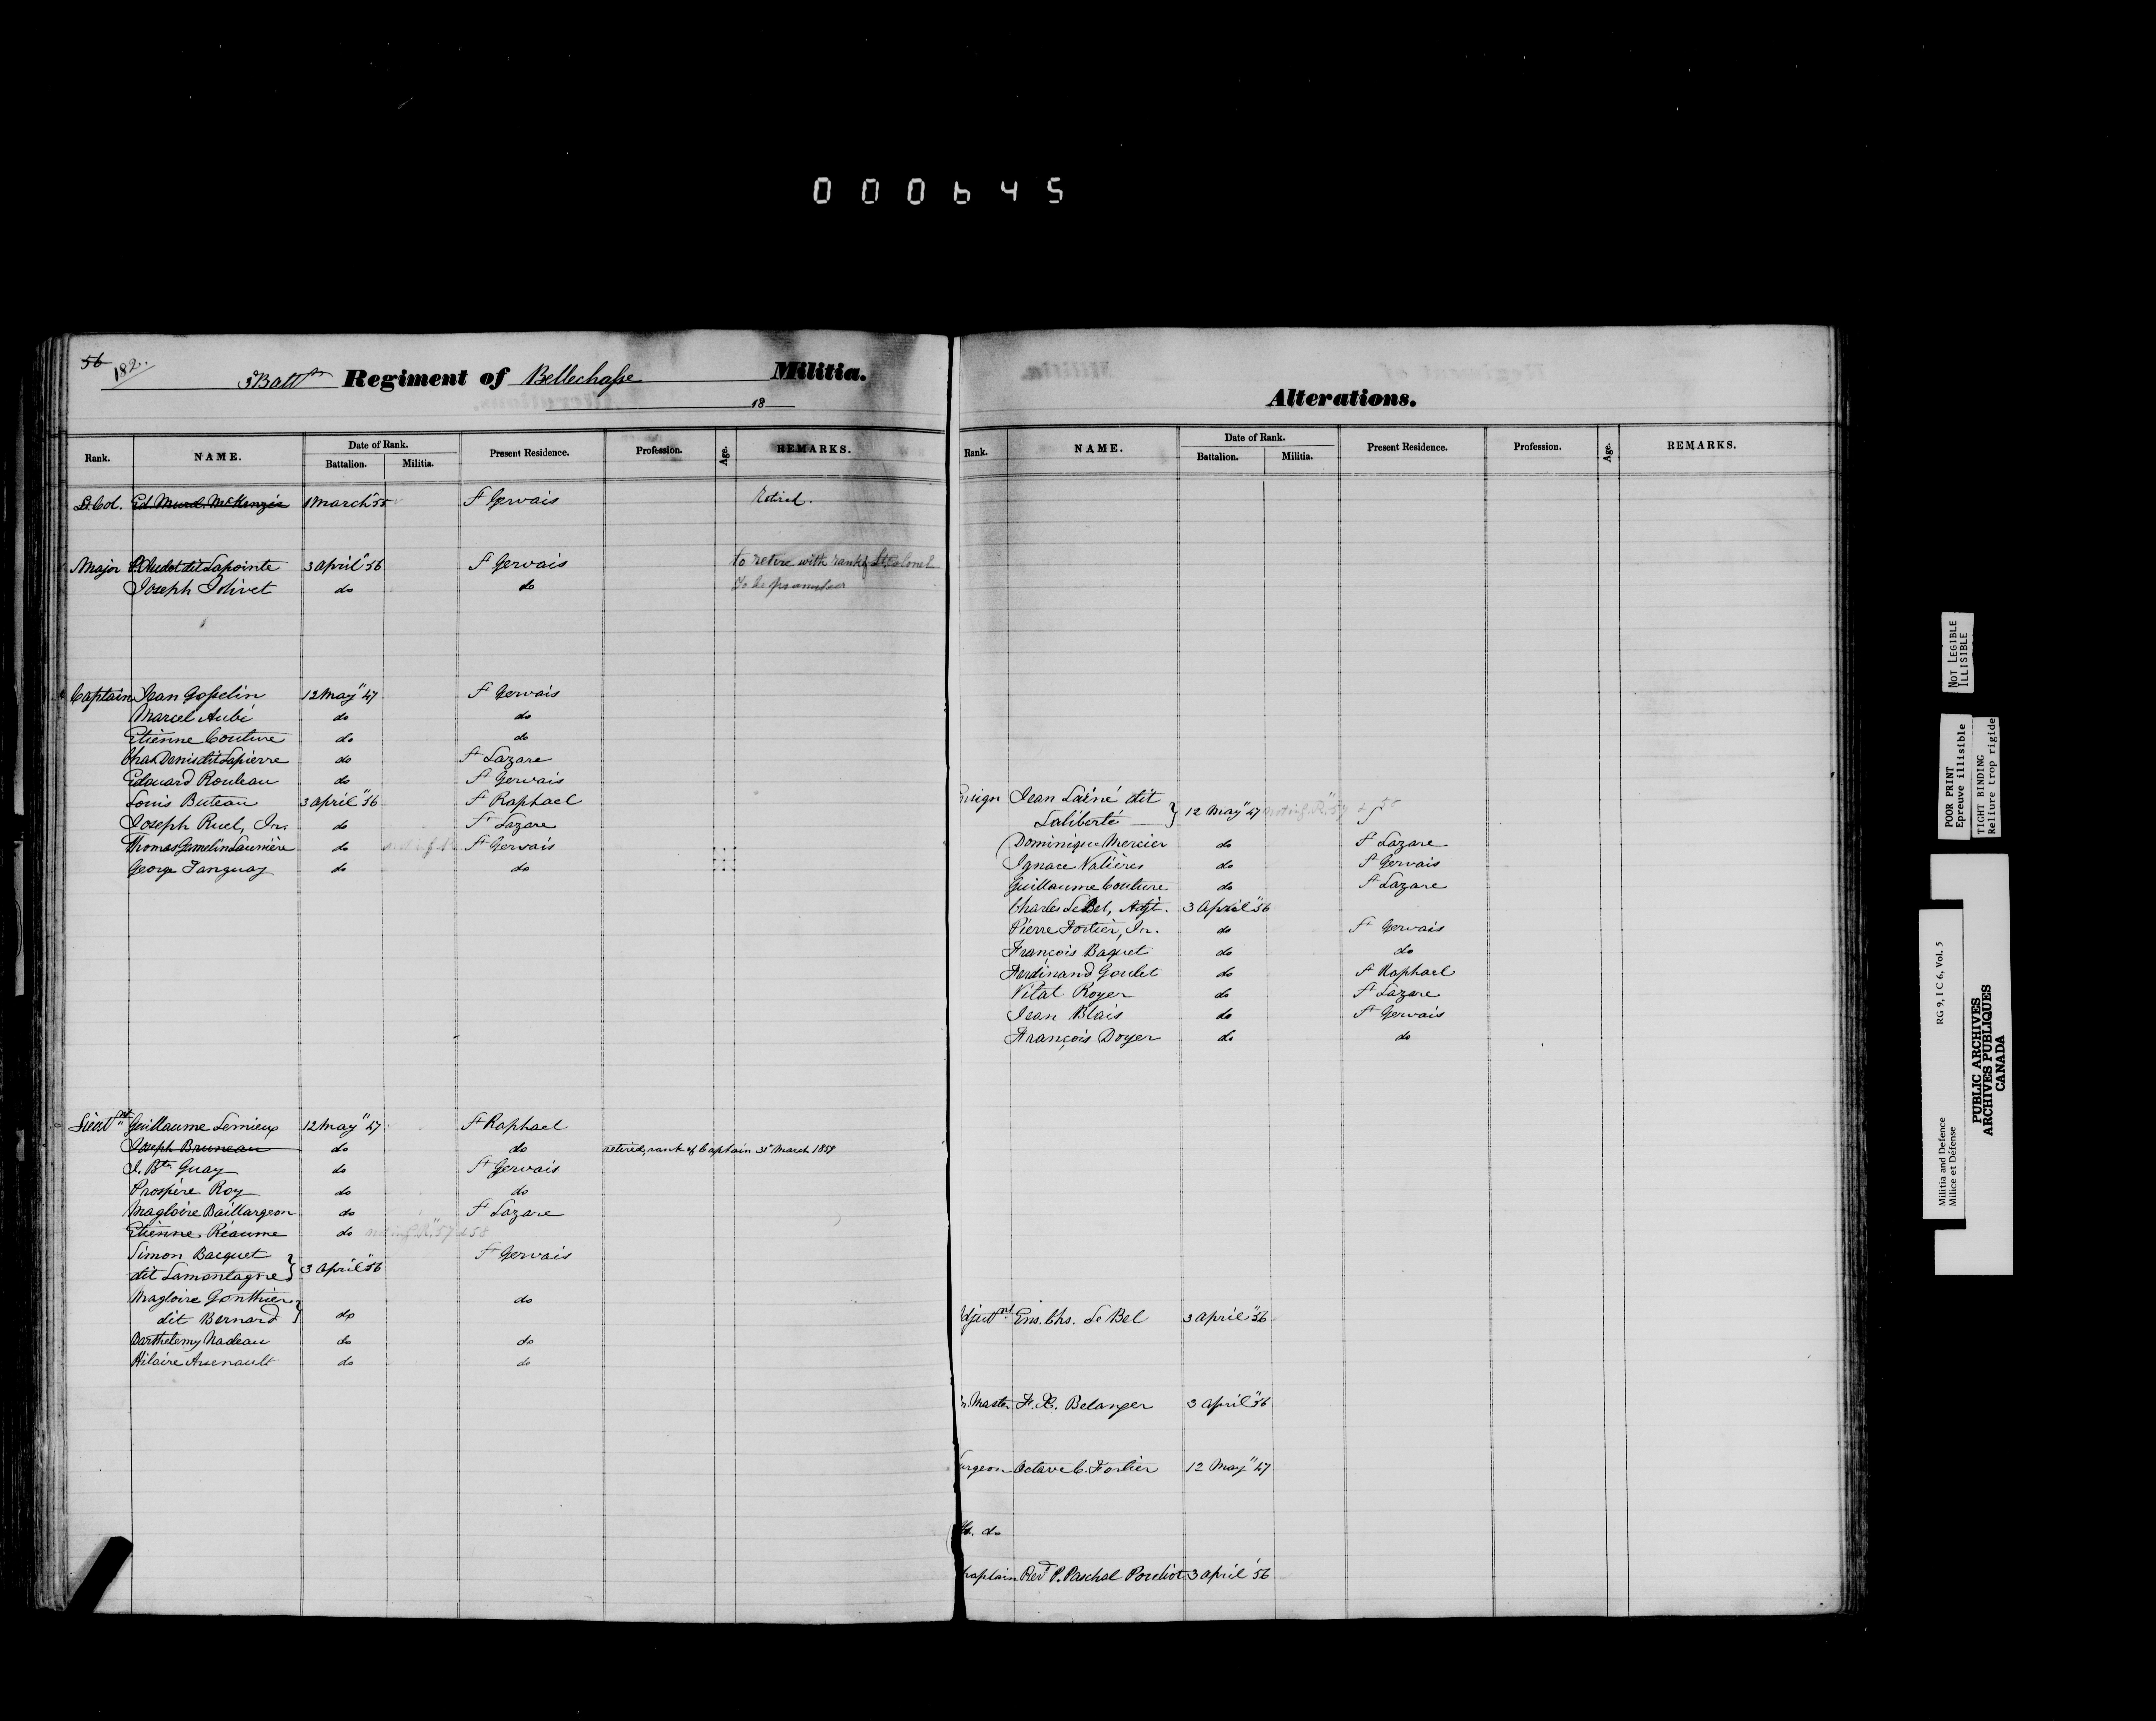 000645
56 182..
3 Battn Regiment of Bellechasse Militia.
18
Rank. NAME. Date of Rank. Present Residence. Profession. Age. REMARKS.
Battalion. Militia.
Lt. Col. Ed. Murd. McKenzie 1 March "55 St Gervais Retired.
Major dit Lapointe 3 April "56 St Gervais to retire with rank of Lt Colonel
Joseph Jolivet do do To be promoted
Captain Jean Gosselin 12 May "47 St Gervais
Marcel Aubé do do
Etienne Couture do do
Chas Denis dit Lapierre do St Lazare
Edouard Rouleau do St Gervais
Louis Buteau 3 April "56 St Raphael
Joseph Ruel, Jr. do St Lazare
Thomas Gamelin Launière do St Gervais
George Tanguay do do
Lieutnt Guillaume Lemieux 12 May "47 St Raphael
Joseph Bruneau do do retired, rank of Captain 31st March 1859
J. Bte Guay do St Gervais
Prospère Roy do do
Magloire Baillargeon do St Lazare
Etienne Réaume do not in g. R. "57 & 58
Simon Bacquet St Gervais
dit Lamontagne } 3 April "56
Magloire Gonthier do
dit Bernard } do
Barthelemy Nadeau do do
Hilaire Arsenault do do
Militia. Regiment of
Alterations.
Rank. NAME. Date of Rank. Present Residence. Profession. Age. REMARKS.
Battalion. Militia.
Ensign Jean Lainé dit
Laliberté } 12 May "47 not in g. R. "57 & 58
Dominique Mercier do St Lazare
Ignace Vatières do St Gervais
Guillaume Couture do St Lazare
Charles LeBel, Adjt. 3 April "56
Pierre Fortier, Jr. do St Gervais
François Baquet do do
Ferdinand Goulet do St Raphael
Vital Royer do St Lazare
Jean Blais do St Gervais
François Doyer do do
Adjutnt Ens. Chs. Le Bel 3 April "56
r. Master F. X. Belanger 3 April "56
urgeon Octave C. Fortier 12 May "47
do
haplain Revd P. Paschal Pouliot 3 April '56
NOT LEGIBLE
ILLISIBLE
POOR PRINT
Epreuve illisible
TIGHT BINDING
Reliure trop rigide
Militia and Defence RG 9, I C 6, Vol. 5
Milice et Défense
PUBLIC ARCHIVES
ARCHIVES PUBLIQUES
CANADA